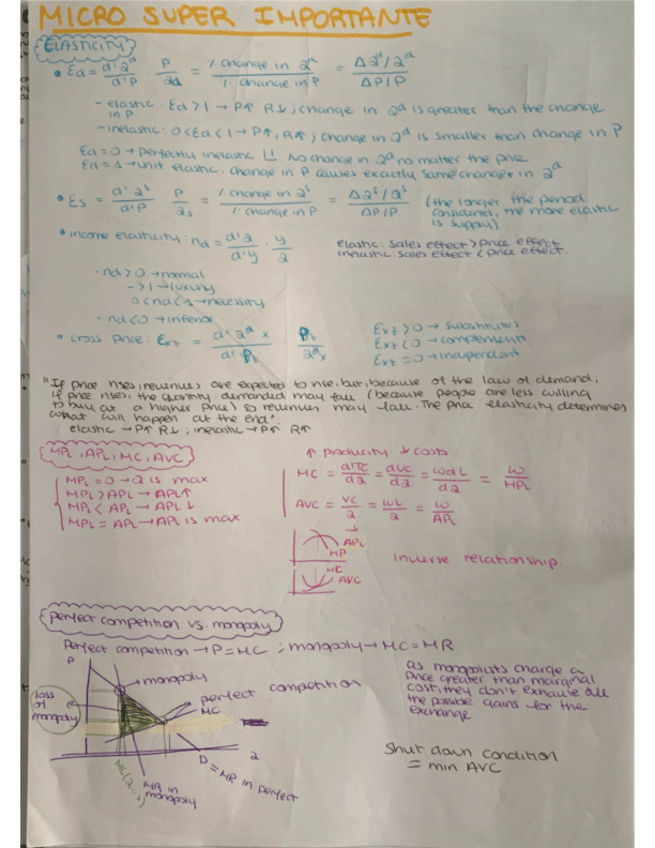 MICRO SUPER IMPORTANTE
ELASTICITY
• Ed = d'Q^d / d'P · P / Qd = % change in Q^d / % change in P = ΔQ^d/Q^d / ΔP/P
- elastic: Ed > 1 → P↑ R↓; change in Q^d is greater than the change
in P
- inelastic: 0 < Ed < 1 → P↑, R↑; change in Q^d is smaller than change in P
Ed = 0 → perfectly inelastic. No change in Q^d no matter the price
Ed = 1 → unit elastic. change in P causes exactly same change in Q^d
• Es = d'Q^s / d'P · P / Qs = % change in Q^s / % change in P = ΔQ^s/Q^s / ΔP/P
(the longer the period
considered, the more elastic
is supply)
• income elasticity: nd = d'Q / d'y · y / Q
elastic: sales effect > price effect
inelastic: sales effect < price effect.
· nd > 0 → normal
→ >1 → luxury
0 < nd < 1 → necessity
· nd < 0 → inferior
• cross price: Exz = d'Q^d x / d'Pz · Pz / Q^d x
Exz > 0 → substitutes
Exz < 0 → complements
Exz = 0 → independent
"If price rises, revenues are expected to rise, but, because of the law of demand,
if price rises, the quantity demanded may fall (because people are less willing
to buy at a higher price) so revenues may fall. The price elasticity determines
what will happen at the end".
elastic → P↑ R↓; inelastic → P↑ R↑
MPL, APL, MC, AVC
MPL = 0 → Q is max
MPL > APL → APL↑
MPL < APL → APL↓
MPL = APL → APL is max
↑ producity ↓ costs
MC = dTC / dQ = dVC / dQ = wdL / dQ = w / MPL
AVC = VC / Q = wL / Q = w / APL
APL
MP
MC
AVC
inverse relationship
perfect competition vs. monopoly
Perfect competition → P = MC; monopoly → MC = MR
P
monopoly
perfect competition
MC
loss
of
monopoly
Q
D = MR in perfect
MR in
monopoly
as monopolists charge a
price greater than marginal
cost, they don't exhaust all
the possible gains for the
exchange
Shut down condition
= min AVC